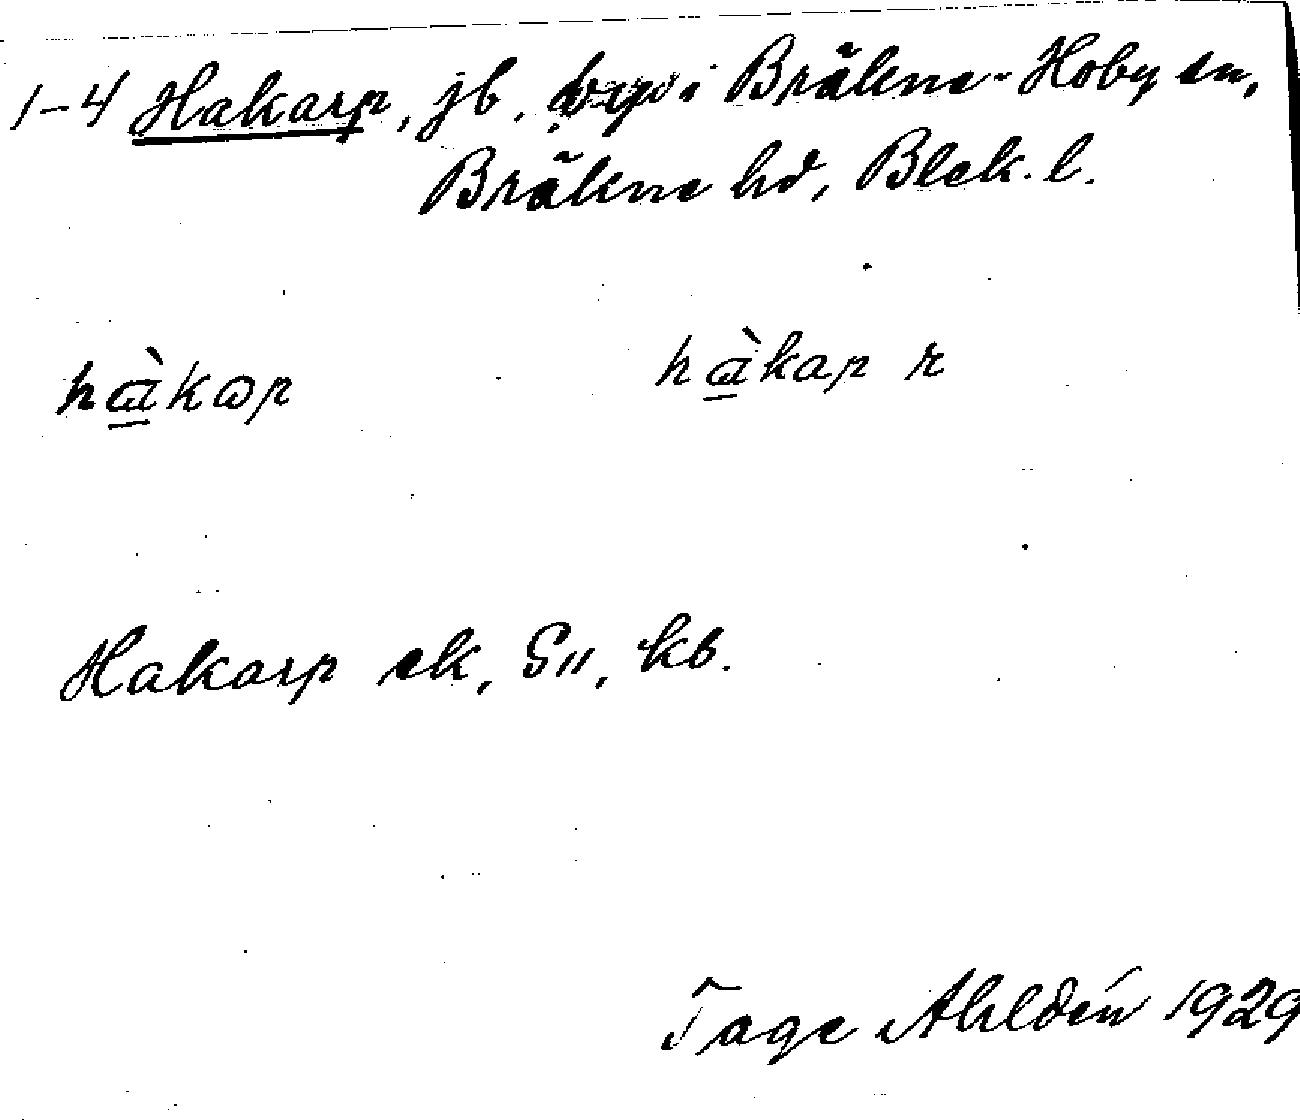 1-4 Hakarp, jb, i Bräkne-Hoby sn,
Bräkne hd, Blek. l.
hàkɷp hàkap r
Hakarp ek, S11, kb.
Tage Ahldén 1929